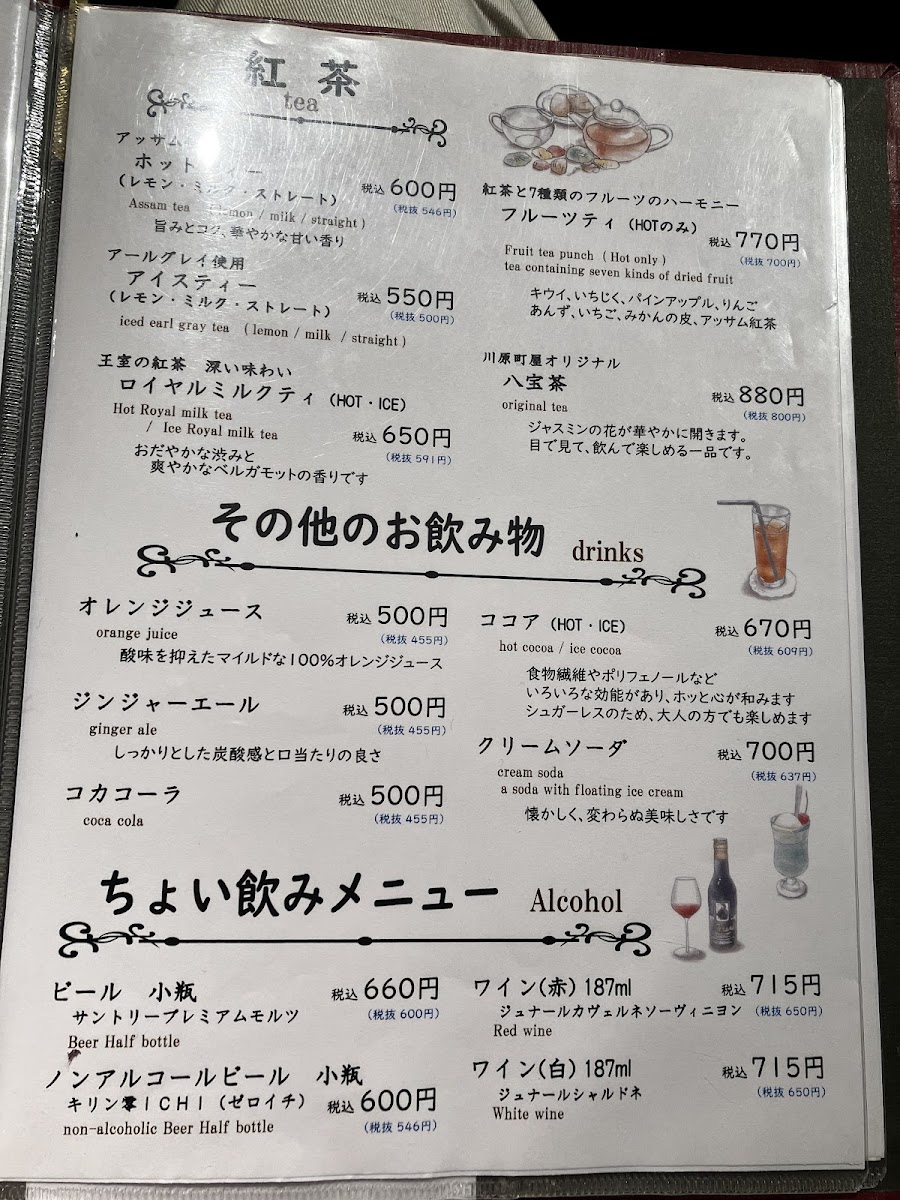 紅 茶
tea
アッサム
ホット ィー
(レモン・ミルク・ストレート) 税込 600円
(税抜 546円)
Assam tea (lemon / milk / straight)
旨みとコク、華やかな甘い香り
アールグレイ使用
アイスティー
(レモン・ミルク・ストレート) 税込 550円
(税抜 500円)
iced earl gray tea (lemon / milk / straight)
王室の紅茶 深い味わい
ロイヤルミルクティ (HOT・ICE)
Hot Royal milk tea
/ Ice Royal milk tea 税込 650円
(税抜 591円)
おだやかな渋みと
爽やかなベルガモットの香りです
紅茶と7種類のフルーツのハーモニー
フルーツティ (HOTのみ) 税込 770円
(税抜 700円)
Fruit tea punch (Hot only)
tea containing seven kinds of dried fruit
キウイ、いちじく、パインアップル、りんご
あんず、いちご、みかんの皮、アッサム紅茶
川原町屋オリジナル
八宝茶 税込 880円
(税抜 800円)
original tea
ジャスミンの花が華やかに開きます。
目で見て、飲んで楽しめる一品です。
その他のお飲み物 drinks
オレンジジュース 税込 500円
(税抜 455円)
orange juice
酸味を抑えたマイルドな100%オレンジジュース
ジンジャーエール 税込 500円
(税抜 455円)
ginger ale
しっかりとした炭酸感と口当たりの良さ
コカコーラ 税込 500円
(税抜 455円)
coca cola
ココア (HOT・ICE) 税込 670円
(税抜 609円)
hot cocoa / ice cocoa
食物繊維やポリフェノールなど
いろいろな効能があり、ホッと心が和みます
シュガーレスのため、大人の方でも楽しめます
クリームソーダ 税込 700円
(税抜 637円)
cream soda
a soda with floating ice cream
懐かしく、変わらぬ美味しさです
ちょい飲みメニュー Alcohol
ビール 小瓶 税込 660円
サントリープレミアムモルツ (税抜 600円)
Beer Half bottle
ノンアルコールビール 小瓶
キリン零ICHI (ゼロイチ) 税込 600円
non-alcoholic Beer Half bottle (税抜 546円)
ワイン(赤) 187ml 税込 715円
ジュナールカヴェルネソーヴィニヨン (税抜 650円)
Red wine
ワイン(白) 187ml 税込 715円
ジュナールシャルドネ (税抜 650円)
White wine